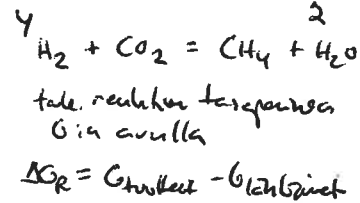 4 2
H₂ + CO₂ = CH₄ + H₂O
tark. reaktion tasapainoa
G:in avulla
ΔG_R = G_tuotteet - G_lähtöaineet